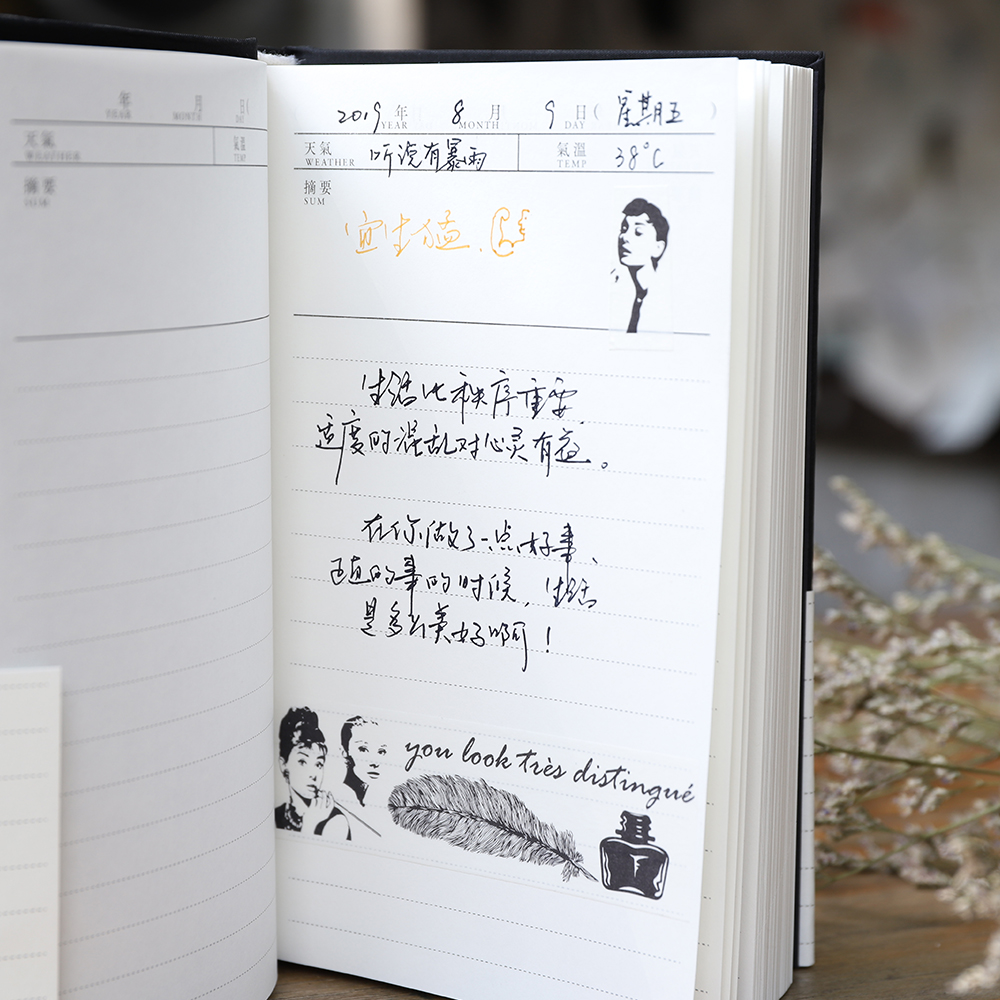 年 月 日(
YEAR MONTH DAY
天氣 氣溫
TEMP
摘要
2019年 8月 9日( 星期五 )
YEAR MONTH DAY
天氣 听说有暴雨 氣溫 38°C
WEATHER TEMP
摘要
SUM
宜生猛.
生活比秩序重要,
适度的混乱对心灵有益。
在你做了一点好事、
正直的事的时候,生活
是多么美好啊!
you look très distingué